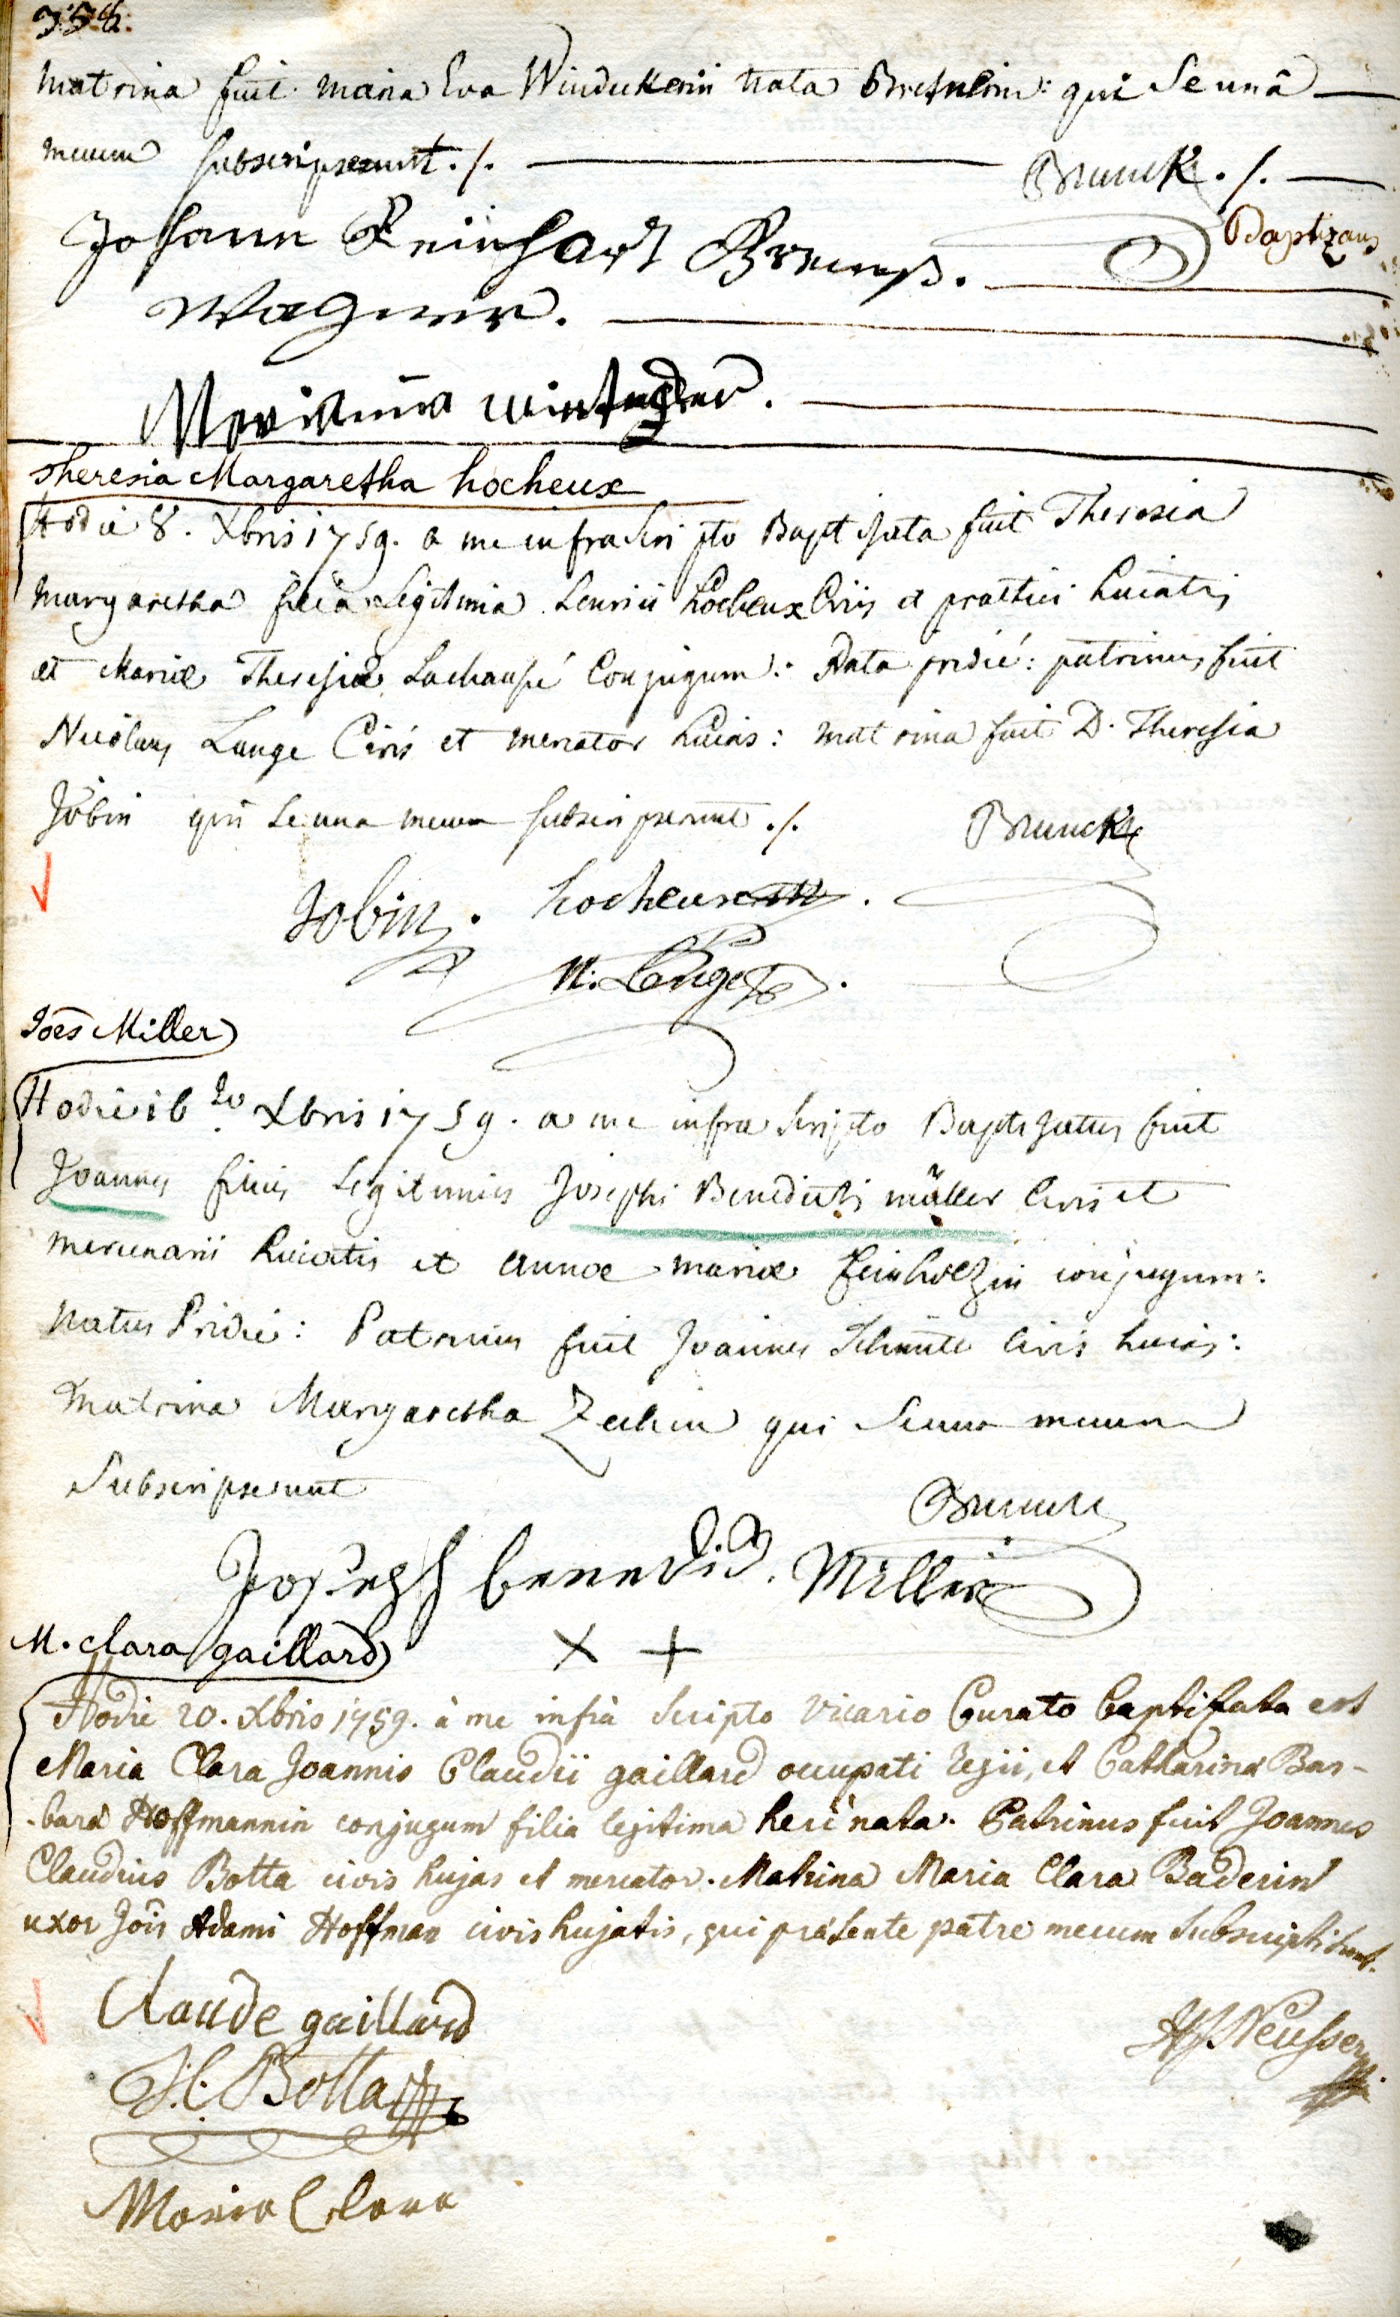 358.
matrina fuit maria Eva Winduckerin nata : qui se unâ
mecum subscripserunt ./. Brunck ./.
Baptizans
Johann Reinhart
Wagner.
Theresia Margaretha Locheux
Hodie 8. Xbris 1759. a me infra scripto Baptizata fuit Theresia
Margaretha filia Legitima Locheux Civis et practici huiatis
et Mariæ Theresiæ Lachausé Conjugum: Nata pridié: patrinus fuit
Nicolaus Lange Civis et mercator huias: matrina fuit D. Theresia
Jobin qui se una mecum subscripserunt ./. Brunck
Jobin. Locheux .
N. Lange .
Joēs Miller
Hodie 16 Xbris 1759. a me infra scripto Baptizatus fuit
Joannes filius Legitimus Josephi Benedicti müller Civis et
mercenarii huiatis et annæ mariæ conjugum:
natus Pridie: Patrinus fuit Joannes Civis huias:
matrina Margaretha qui se una mecum
Subscripserunt Brunck
Joseph benedict. Miller
M. Clara gaillard
Hodie 20. Xbris 1759. à me infrà scripto Vicario Curato baptisata est
Maria Clara Joannis Claudii gaillard occupati regii, et Catharinæ Bar-
-baræ Hoffmannin conjugum filia legitima heri nata. Patrinus fuit Joannes
Claudius Botta civis hujas et mercator. Matrina Maria Clara Baderin
uxor Jōis Adami Hoffman civis hujatis, qui præsente patre mecum subscripserunt.
Claude gaillard
J.C. Botta
Maria Clara